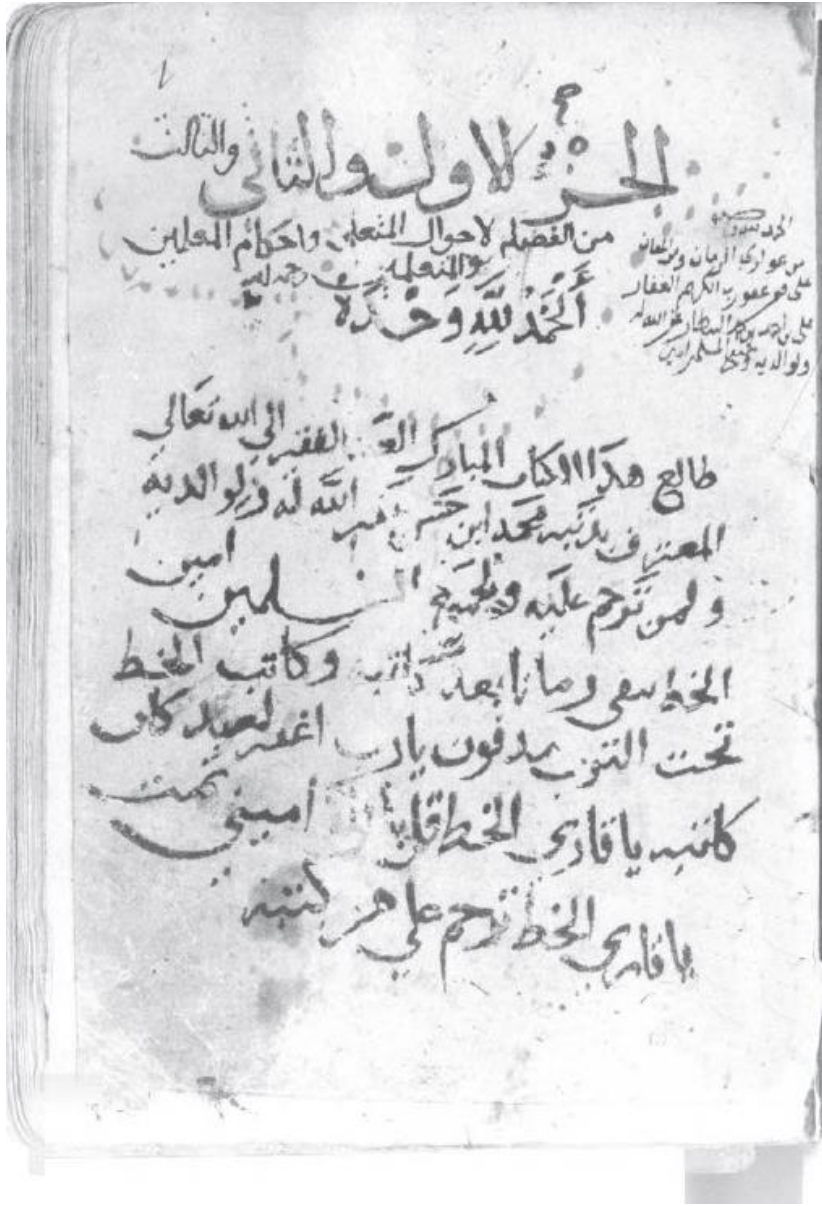 الجزء الاول والثاني والثالث
من الفضيله لاحوال المتعلمين واحكام المعلمين
والمتعلمين
أَلْحَمْدُ لِلَّهِ وَحْدَهُ
الحمد لله
من عواري الزمان
على فوعفو ربه الكريم الغفار
على بن احمد غفر الله له
ولوالديه ولجميع المسلمين امين
طالع هذا الاكتاب المبارك العبد الفقير الى الله تعالي
المعترف بذنبه محمد ابن حسن غفر الله له ولوالديه
ولمن ترحم عليه ولجميع المسلمين امين
الخط يبقى زمانا بعد كاتبه وكاتب الخط
تحت الترب مدفون يارب اغفر لعبد كان
كاتبه يا قاري الخط قل امين تمت
يا قاري الخط ترحم علي من كتبه